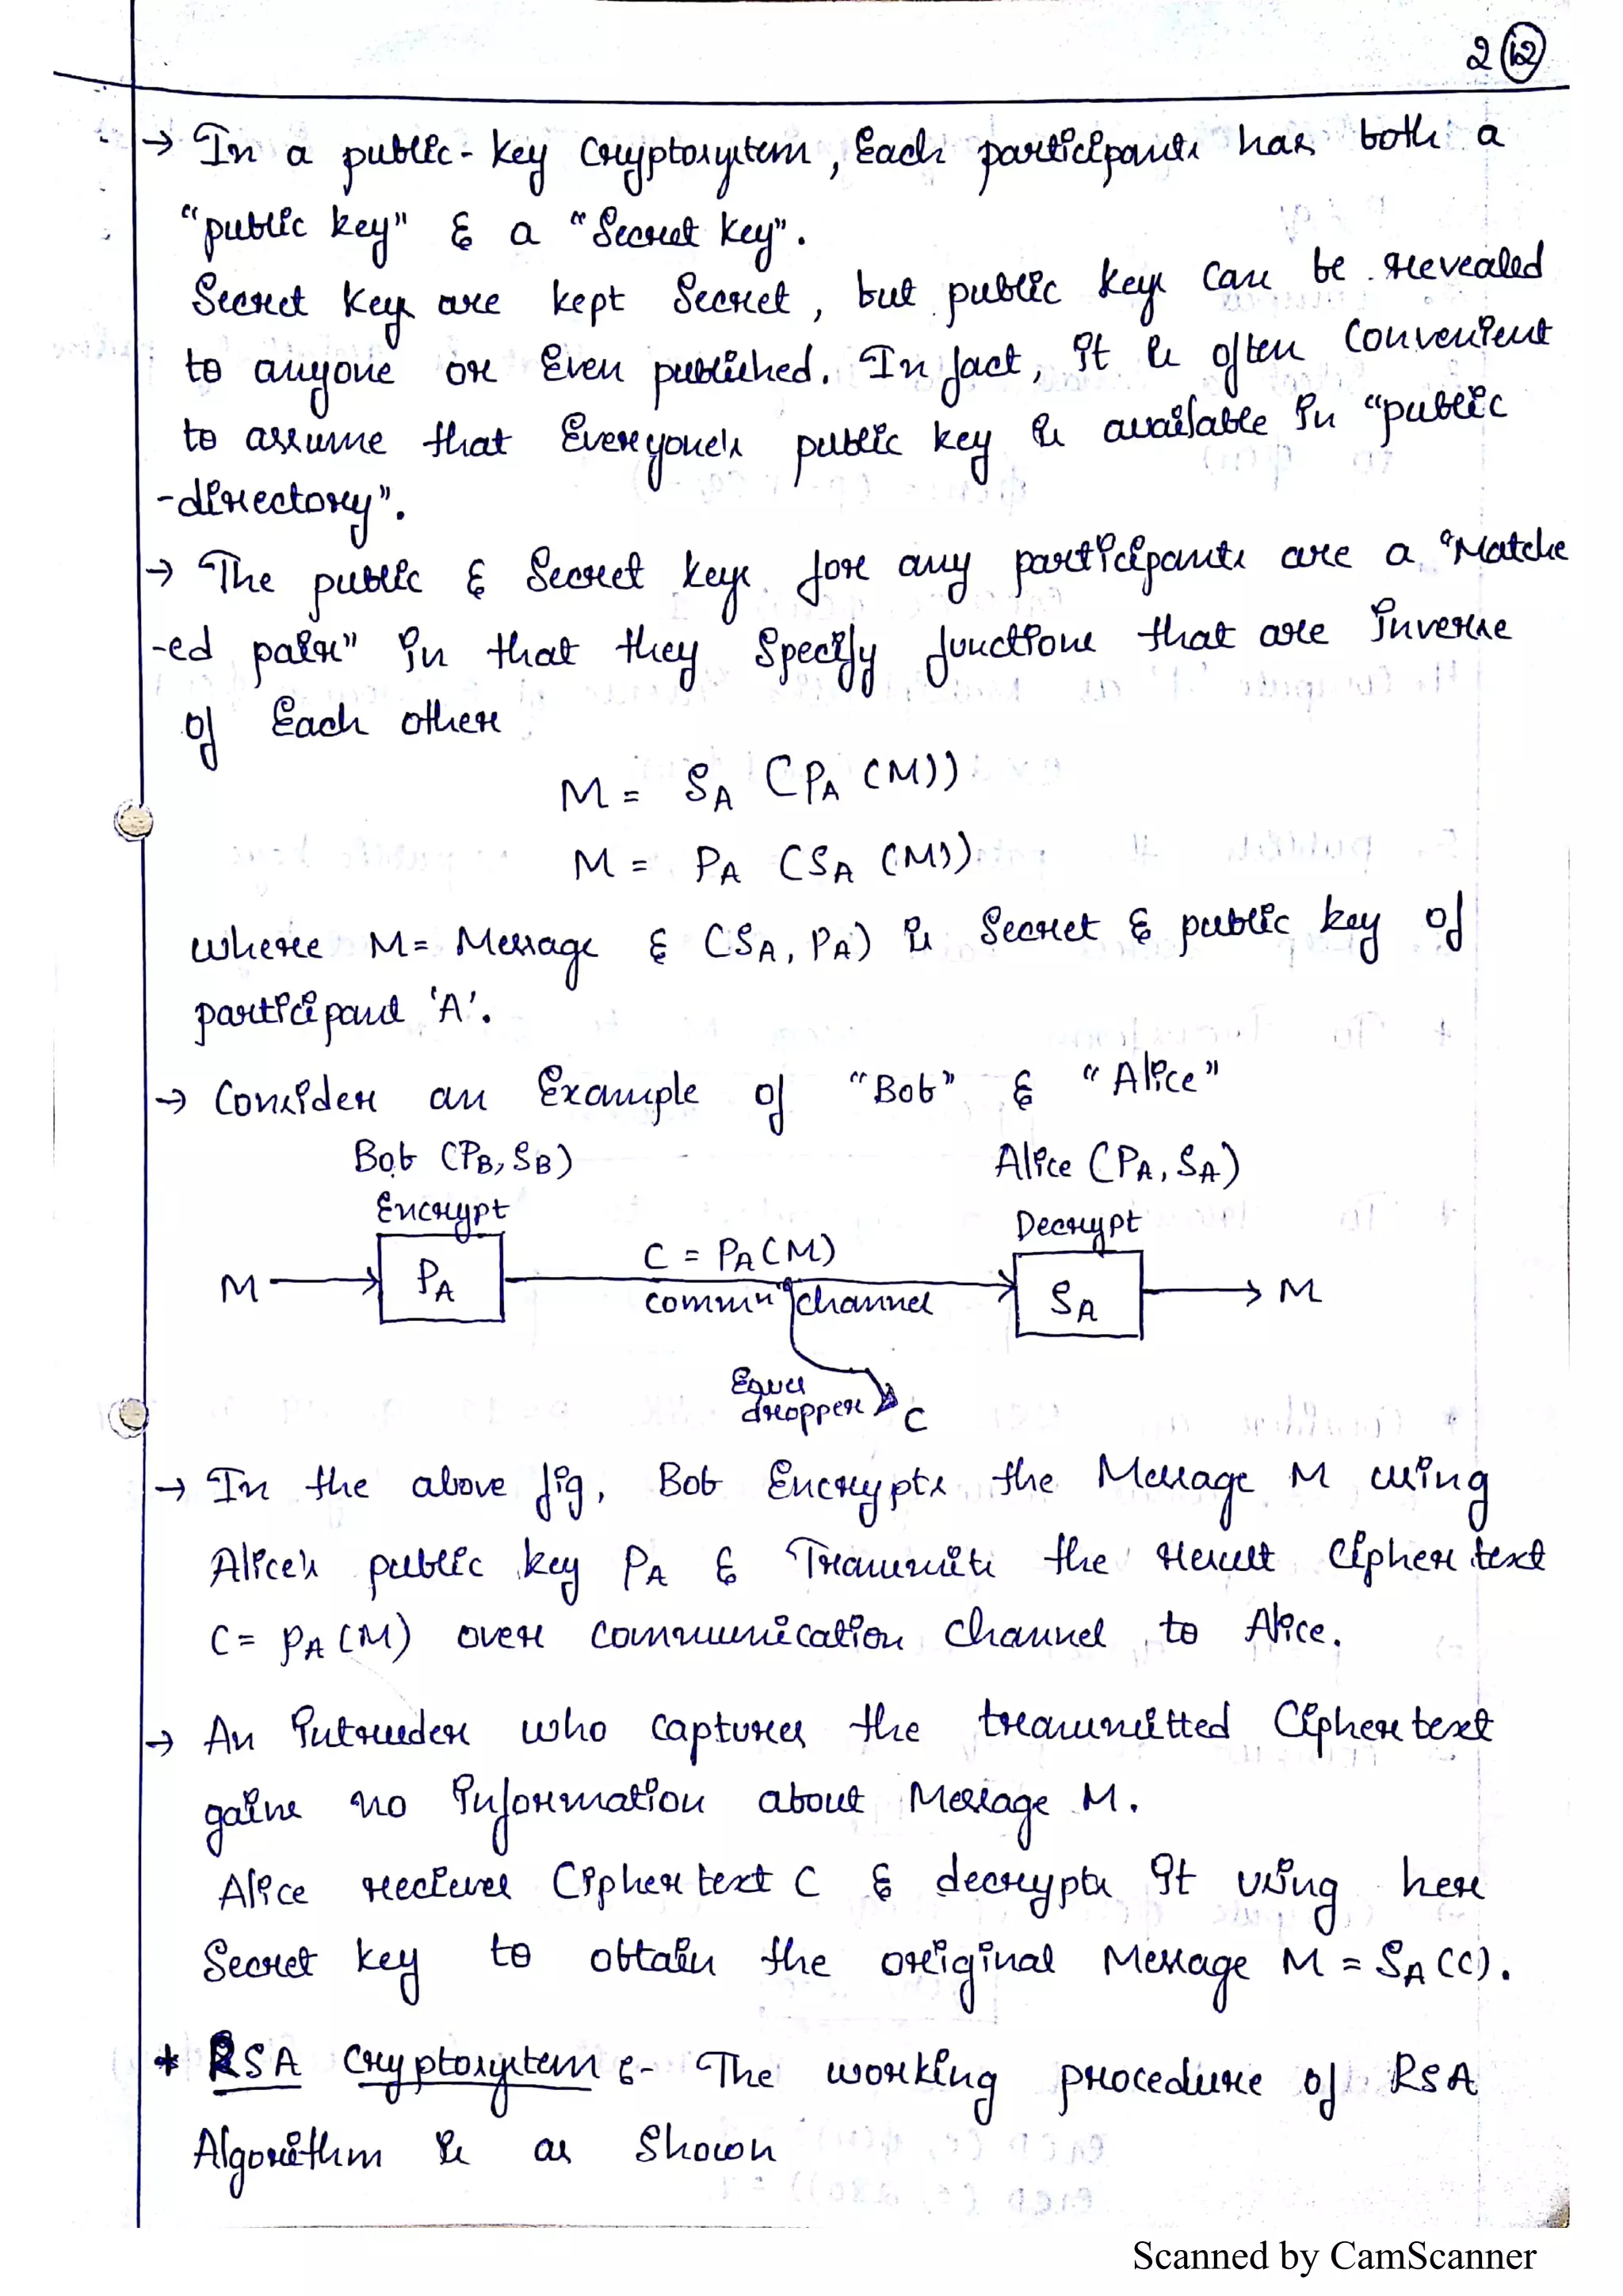 2 12
→ In a public-key Cryptosystem, Each participants has both a
"public key" & a "Secret key".
Secret keys are kept Secret, but public keys can be revealed
to anyone or Even published. In fact, it is often Convenient
to assume that Everyone's public key is available in "public
-directory".
→ The public & Secret keys for any participants are a "Matche
-ed pair" in that they Specify functions that are inverse
of Each other
M = SA (PA (M))
M = PA (SA (M))
where M = Message & (SA, PA) is Secret & public key of
participant 'A'.
→ Consider an Example of "Bob" & "Alice"
Bob (PB, SB) Alice (PA, SA)
Encrypt Decrypt
C = PA(M)
M PA SA M
commun channel
Eaves
dropper C
→ In the above fig, Bob Encrypts the Message M using
Alice's public key PA & Transmits the result Cipher text
C = PA (M) over communication channel to Alice.
→ An intruder who captures the transmitted Cipher text
gains no information about Message M.
Alice recieves Cipher text C & decrypts it using her
Secret key to obtain the original Message M = SA (C).
* RSA Cryptosystem :- The working procedure of RSA
Algorithm is as Shown
Scanned by CamScanner